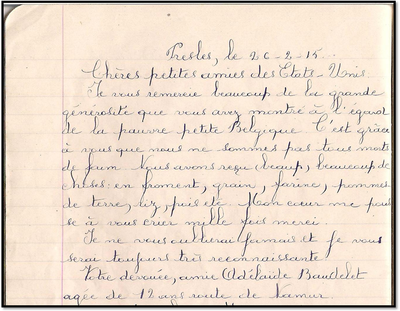 Presles, le 26-2-15.
Chères petites amies des Etats-Unis.
Je vous remercie beaucoup de la grande
générosité que vous avez montré à l'égard
de la pauvre petite Belgique C'est grâce
à vous que nous ne sommes pas tous morts
de faim Nous avons reçu (beaup) beaucoup de
choses: en froment, grain, farine, pommes
de terre, riz, pois etc. Mon cœur me pous
se à vous crier mille fois merci.
Je ne vous oublierai jamais et je vous
serai toujours très reconnaissante
Votre dévouée, amie Adélaïde Baudelet
agée de 12 ans route de Namur.